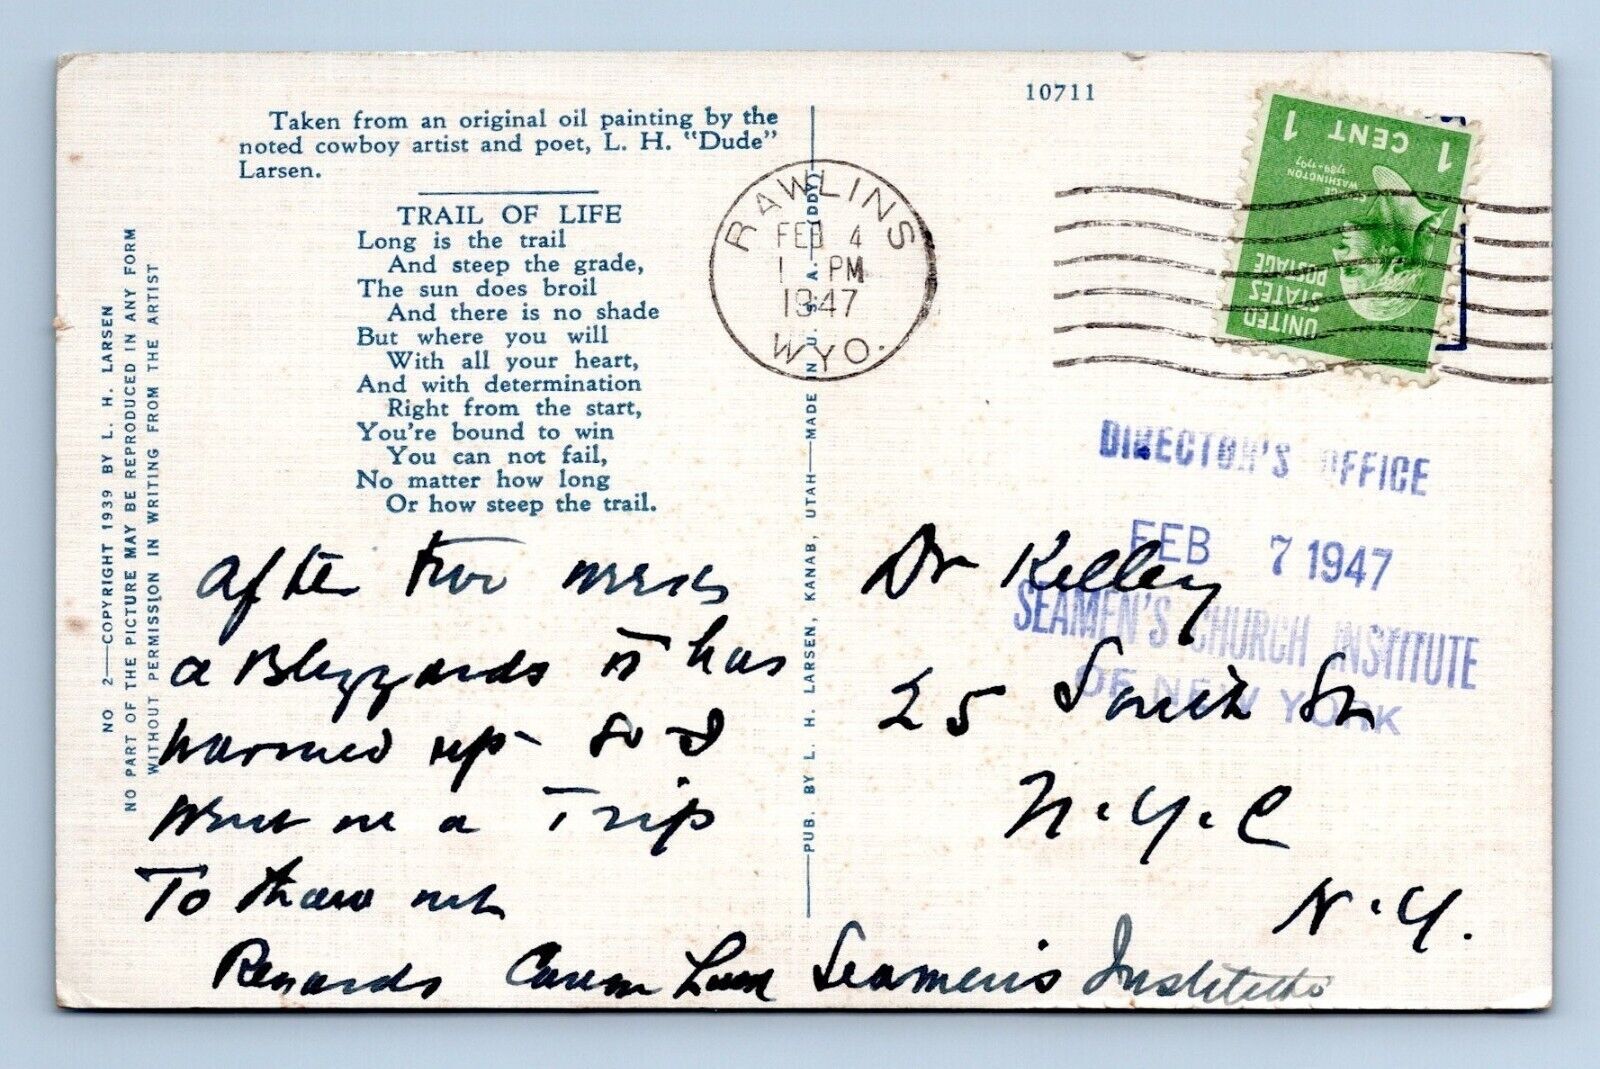 10711
Taken from an original oil painting by the
noted cowboy artist and poet, L. H. "Dude"
Larsen.
TRAIL OF LIFE
Long is the trail
And steep the grade,
The sun does broil
And there is no shade
But where you will
With all your heart,
And with determination
Right from the start,
You're bound to win
You can not fail,
No matter how long
Or how steep the trail.
NO 2—COPYRIGHT 1939 BY L. H. LARSEN
NO PART OF THE PICTURE MAY BE REPRODUCED IN ANY FORM
WITHOUT PERMISSION IN WRITING FROM THE ARTIST
PUB. BY L. H. LARSEN, KANAB, UTAH—MADE IN U. S. A. (DDY)
RAWLINS
FEB 4
1 PM
1947
WYO.
1 CENT 1
WASHINGTON
1789-1797
UNITED
STATES
POSTAGE
DIRECTOR'S OFFICE
FEB 7 1947
SEAMEN'S CHURCH INSTITUTE
OF NEW YORK
after two weeks
a Blizzards it has
warmed up so I
went on a Trip
To thaw out
Regards
Dr Kelley
25 South St
N.Y.C
N.Y.
Seamen's Institute